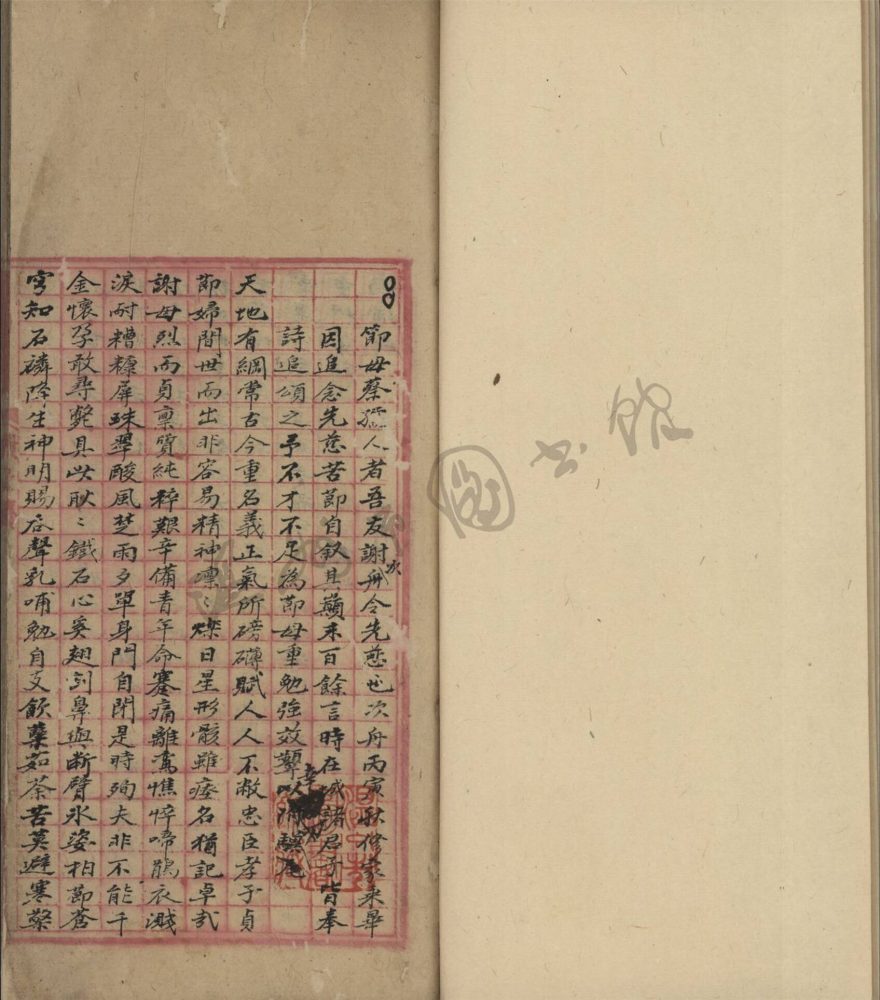 節母蔡孺人者吾友謝次舟令先慈也次舟丙寅秋修家乘畢
因追念先慈苦節自敘其顛末百餘言時在城諸君子皆奉
詩追頌之予不才不足為節母重勉強效顰以
天地有綱常古今重名義正氣所磅礴賦人人不敝忠臣孝子貞
節婦間世而出非容易精神凜〻爍日星形骸雖瘞名猶記卓哉
謝母烈而貞稟質純粹艱辛備青年命蹇痛離鸞憔悴啼鵑衣濺
淚耐糟糠屏珠翠酸風楚雨夕單身門自閉是時殉夫非不能千
金懷孕敢尋斃具此耿〻鐵石心奚翅剖鼻與斷臂冰姿柏節蒼
穹知石麟降生神明賜吞聲乳哺勉自支飲蘗茹荼苦莫避寒檠
圖書館